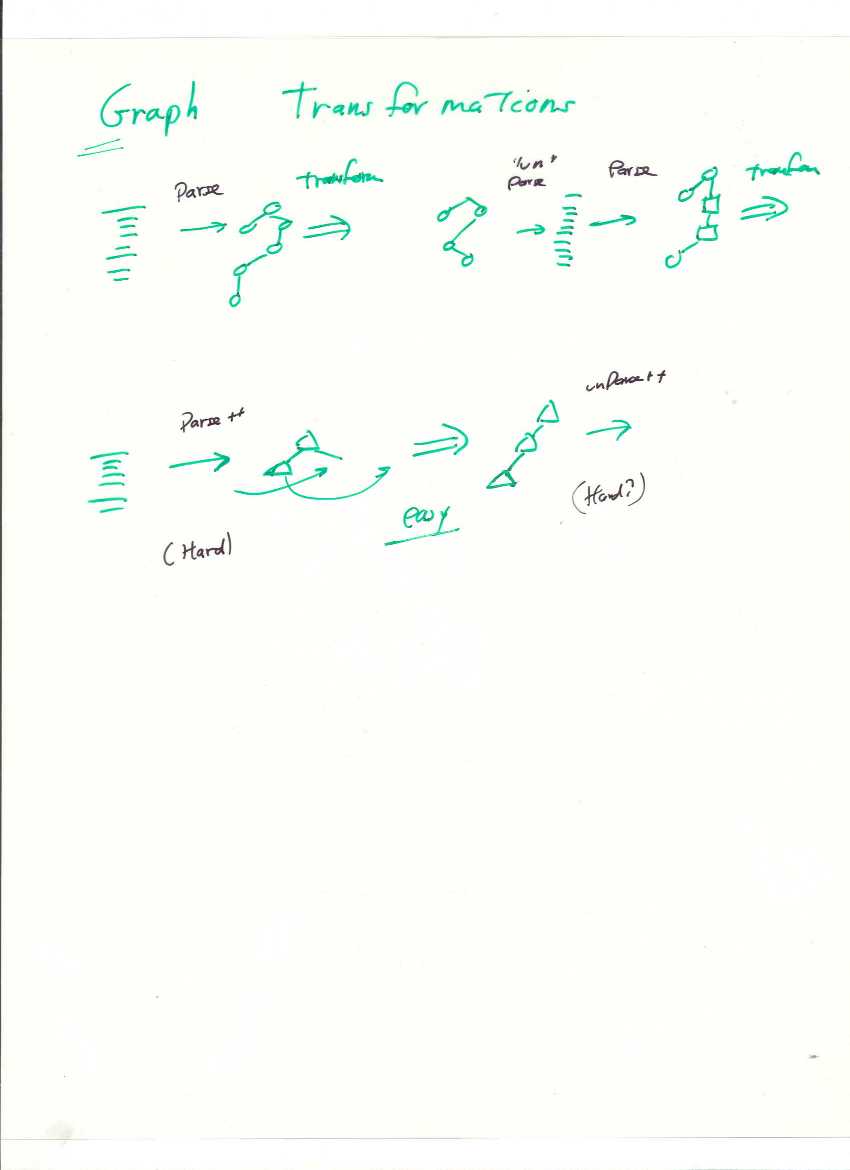 Graph Transformations
Parse transform "un" Parse transform
parse
Parse++ unParse++
(Hard) easy (Hard?)